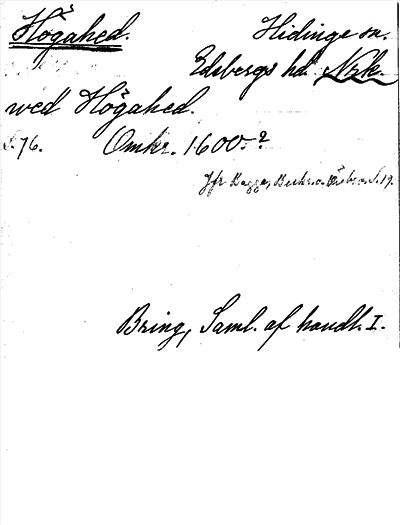 Högahed. Hidinge sn.
Edsbergs hd. Nrk.
wed Högahed.
S. 76. Omkr. 1600.?
Jfr Bagge, Beskr. o. Örebro s. 19.
Bring, Saml. af handl. I.